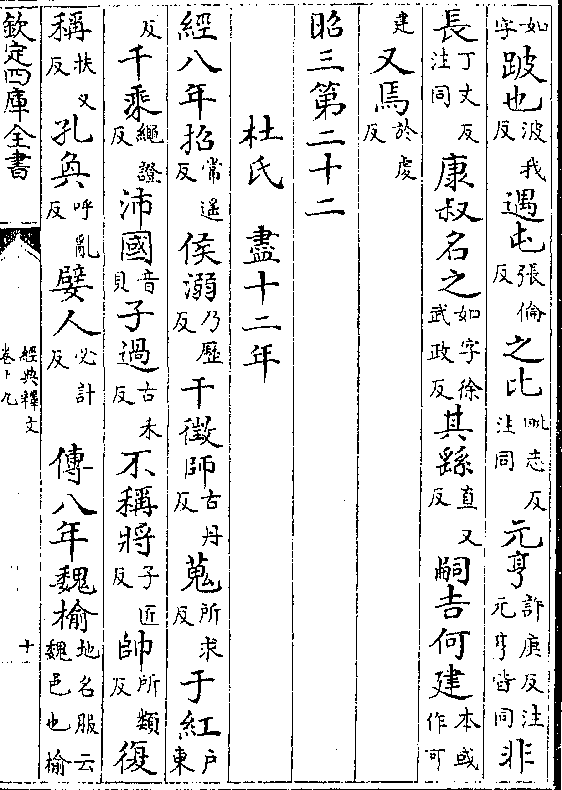 如字跛也波我反遇屯張倫反之比毗志反注同元亨許庚反注元亨皆同非
長丁丈反注同康叔名之如字徐武政反其繇直又反嗣吉何建本或作可
建又焉於虔反
昭三第二十二
杜氏　盡十二年
經八年招常遥反侯溺乃歷反干徵師古丹反蒐所求反于紅户東
反千乘繩證反沛國音貝子過古禾反不稱將子匠反帥所類反復
稱扶又反孔奐呼亂反嬖人必計反傳八年魏榆地名服云魏邑也榆
欽定四庫全書
經典釋文
卷十九
十